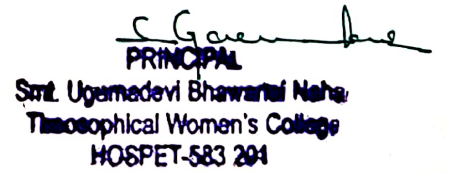 PRINCIPAL
Smt. Ugamadevi Bhawarlal Naha
Theosophical Women's College
HOSPET-583 201